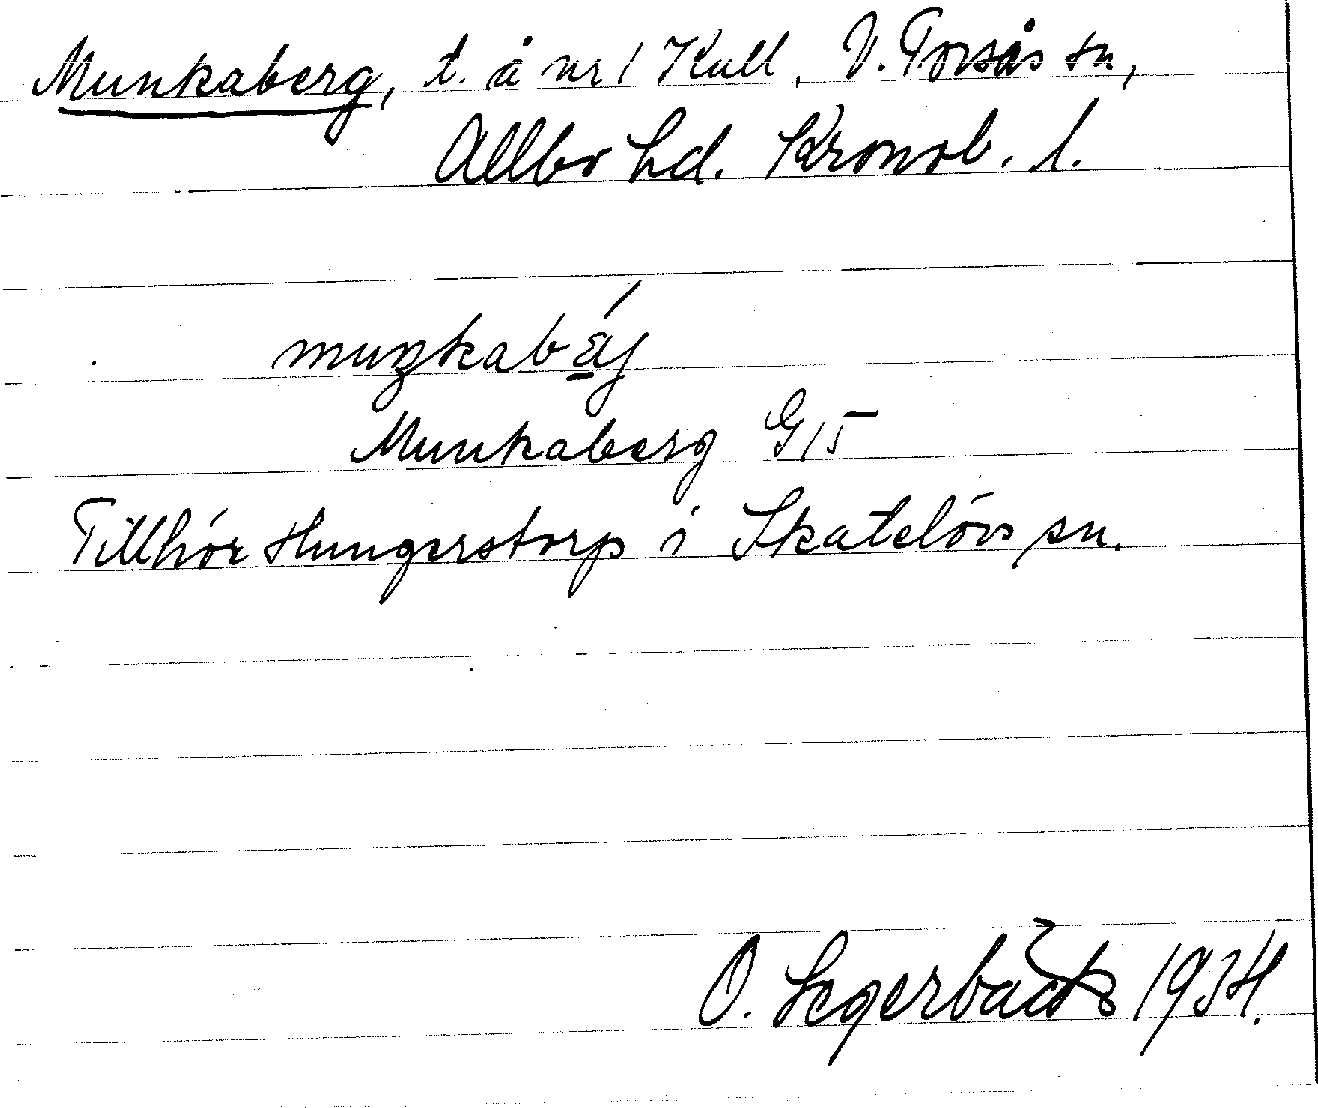 Munkaberg, t. å nr 1 Kull, V. Torsås sn,
Allbo hd. Kronob. l.
muŋkabä́j
Munkaberg G 15
Tillhör Hungerstorp i Skatelövs sn.
O. Segerbäck 1934.